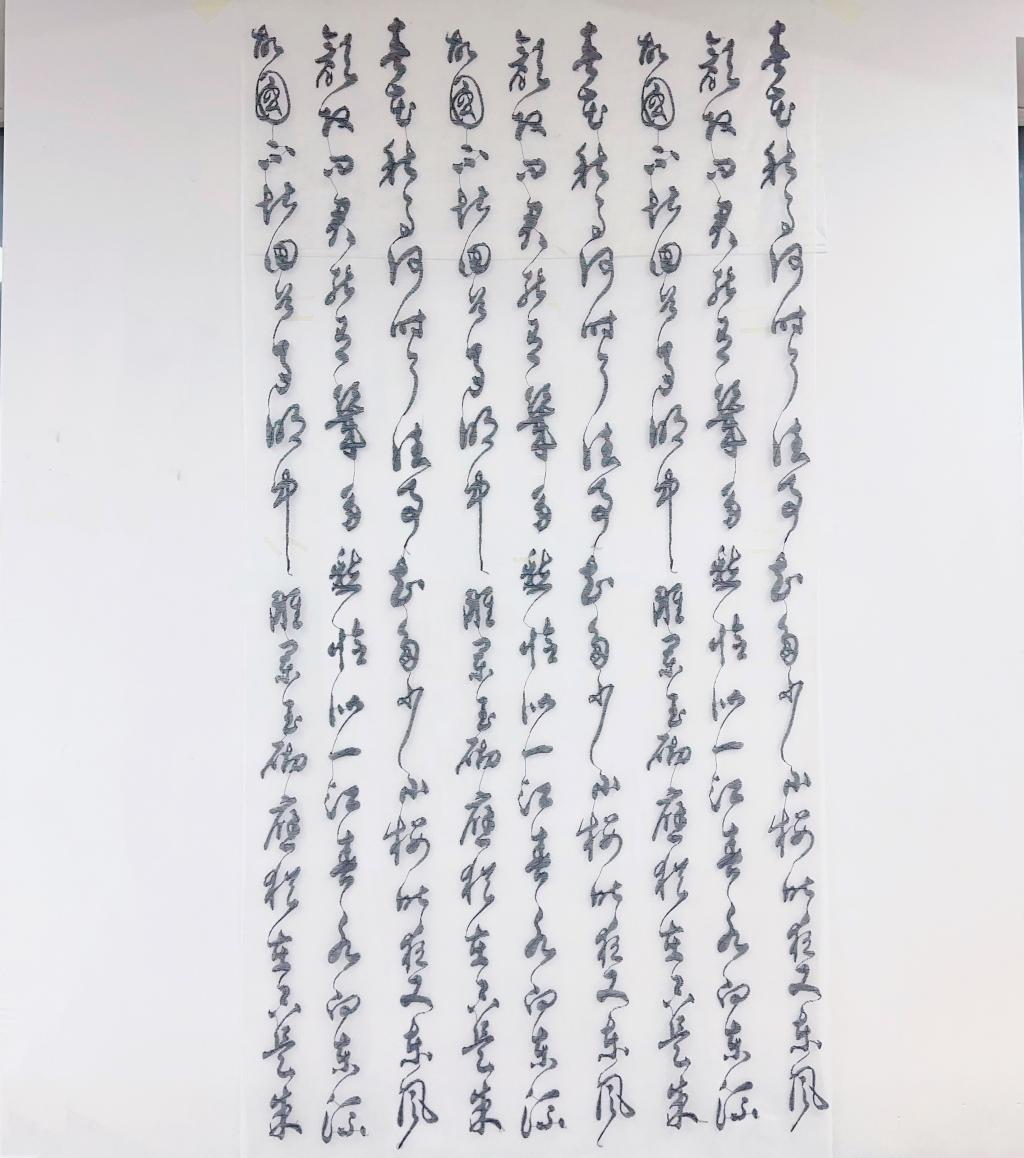 春花秋月何時了往事知多少小樓昨夜又東風
顏改問君能有幾多愁恰似一江春水向東流
故國不堪回首月明中雕闌玉砌應猶在只是朱
春花秋月何時了往事知多少小樓昨夜又東風
顏改問君能有幾多愁恰似一江春水向東流
故國不堪回首月明中雕闌玉砌應猶在只是朱
春花秋月何時了往事知多少小樓昨夜又東風
顏改問君能有幾多愁恰似一江春水向東流
故國不堪回首月明中雕闌玉砌應猶在只是朱